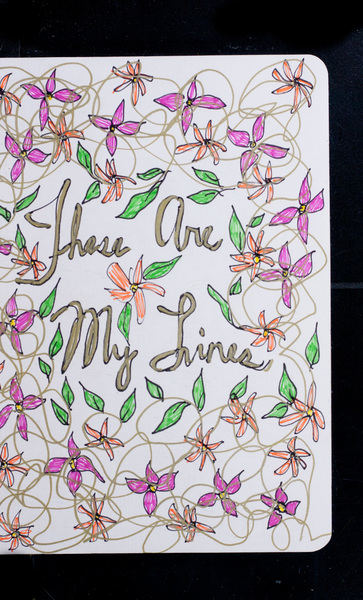 These Are
My Lines